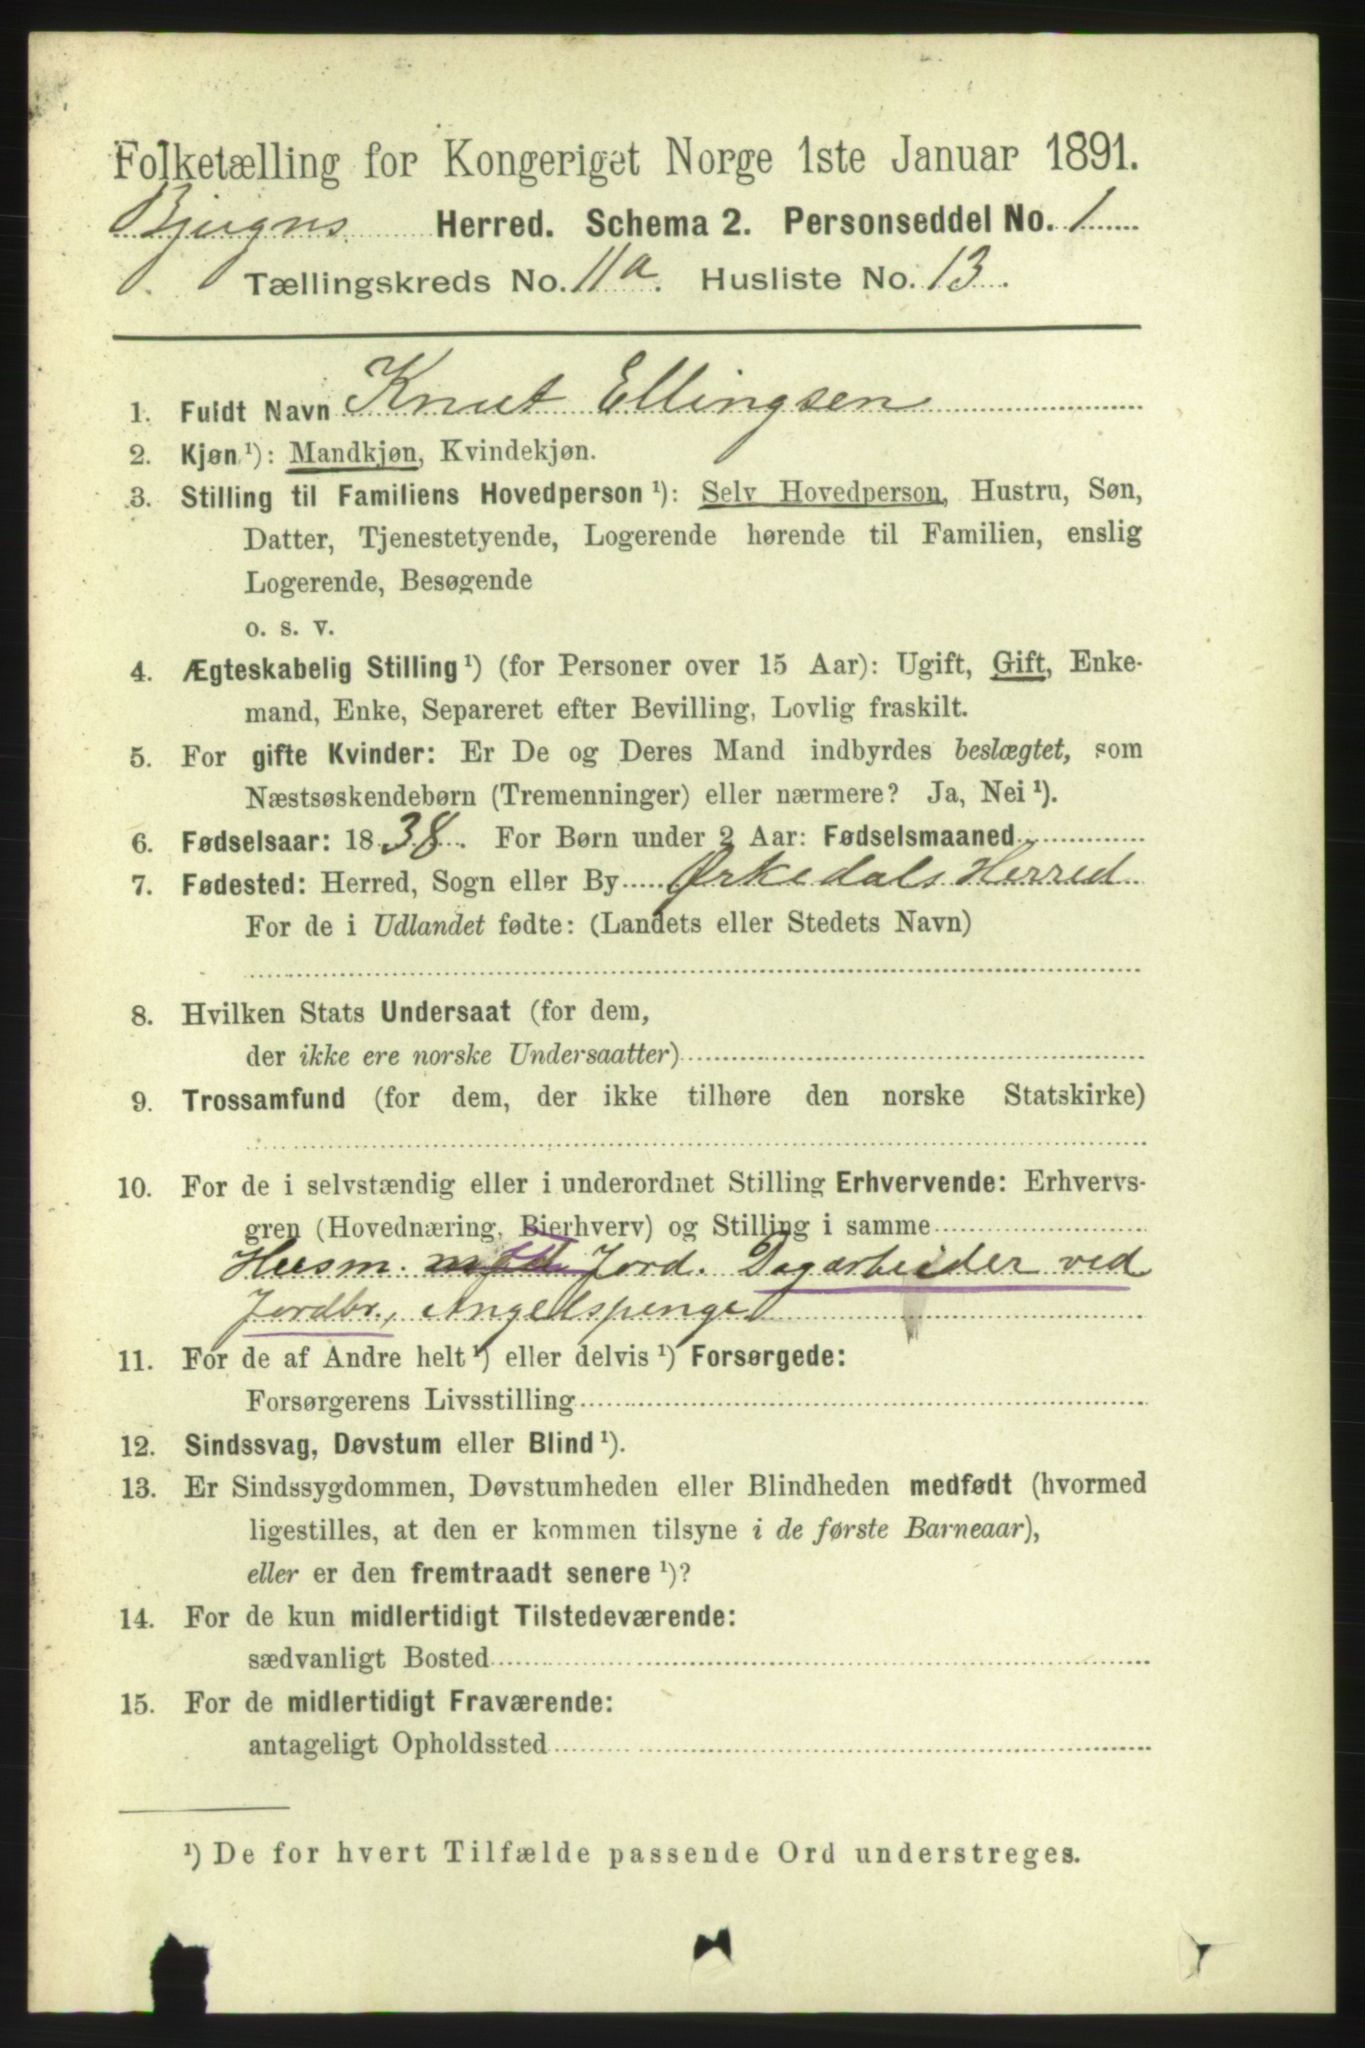 Folketælling for Kongeriget Norge 1ste Januar 1891.
Bjugns Herred. Schema 2. Personseddel No. 1
Tællingskreds No. 11a. Husliste No. 13.
1. Fuldt Navn Knut Ellingsen
2. Kjøn ¹): Mandkjøn, Kvindekjøn.
3. Stilling til Familiens Hovedperson ¹): Selv Hovedperson, Hustru, Søn,
Datter, Tjenestetyende, Logerende hørende til Familien, enslig
Logerende, Besøgende
o. s. v.
4. Ægteskabelig Stilling ¹) (for Personer over 15 Aar): Ugift, Gift, Enke-
mand, Enke, Separeret efter Bevilling, Lovlig fraskilt.
5. For gifte Kvinder: Er De og Deres Mand indbyrdes beslægtet, som
Næstsøskendebørn (Tremenninger) eller nærmere? Ja, Nei ¹).
6. Fødselsaar: 1838. For Børn under 2 Aar: Fødselsmaaned
7. Fødested: Herred, Sogn eller By Ørkedals Herred
For de i Udlandet fødte: (Landets eller Stedets Navn)
8. Hvilken Stats Undersaat (for dem,
der ikke ere norske Undersaatter)
9. Trossamfund (for dem, der ikke tilhøre den norske Statskirke)
10. For de i selvstændig eller i underordnet Stilling Erhvervende: Erhvervs-
gren (Hovednæring, Bierhverv) og Stilling i samme
Husm. Jord. Dagarbeider ved
Jordbr.,
11. For de af Andre helt ¹) eller delvis ¹) Forsørgede:
Forsørgerens Livsstilling
12. Sindssvag, Døvstum eller Blind ¹).
13. Er Sindssygdommen, Døvstumheden eller Blindheden medfødt (hvormed
ligestilles, at den er kommen tilsyne i de første Barneaar),
eller er den fremtraadt senere ¹)?
14. For de kun midlertidigt Tilstedeværende:
sædvanligt Bosted
15. For de midlertidigt Fraværende:
antageligt Opholdssted
¹) De for hvert Tilfælde passende Ord understreges.